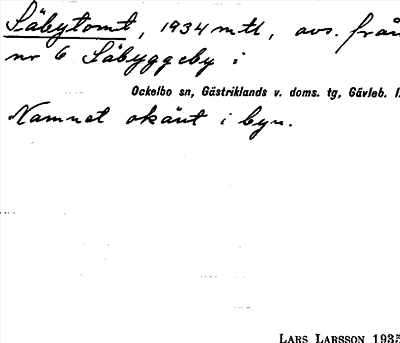 Säbytomt, 1934 mtl, avs. från
nr 6 Säbyggeby i
Ockelbo sn, Gästriklands v. doms. tg, Gävleb. l.
Namnet okänt i byn.
LARS LARSSON 1935